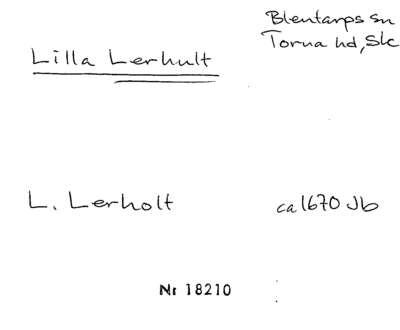 Blentarps sn
Torna hd, Sk
Lilla Lerhult
L. Lerholt
ca 1670 Jb
Nr 18210